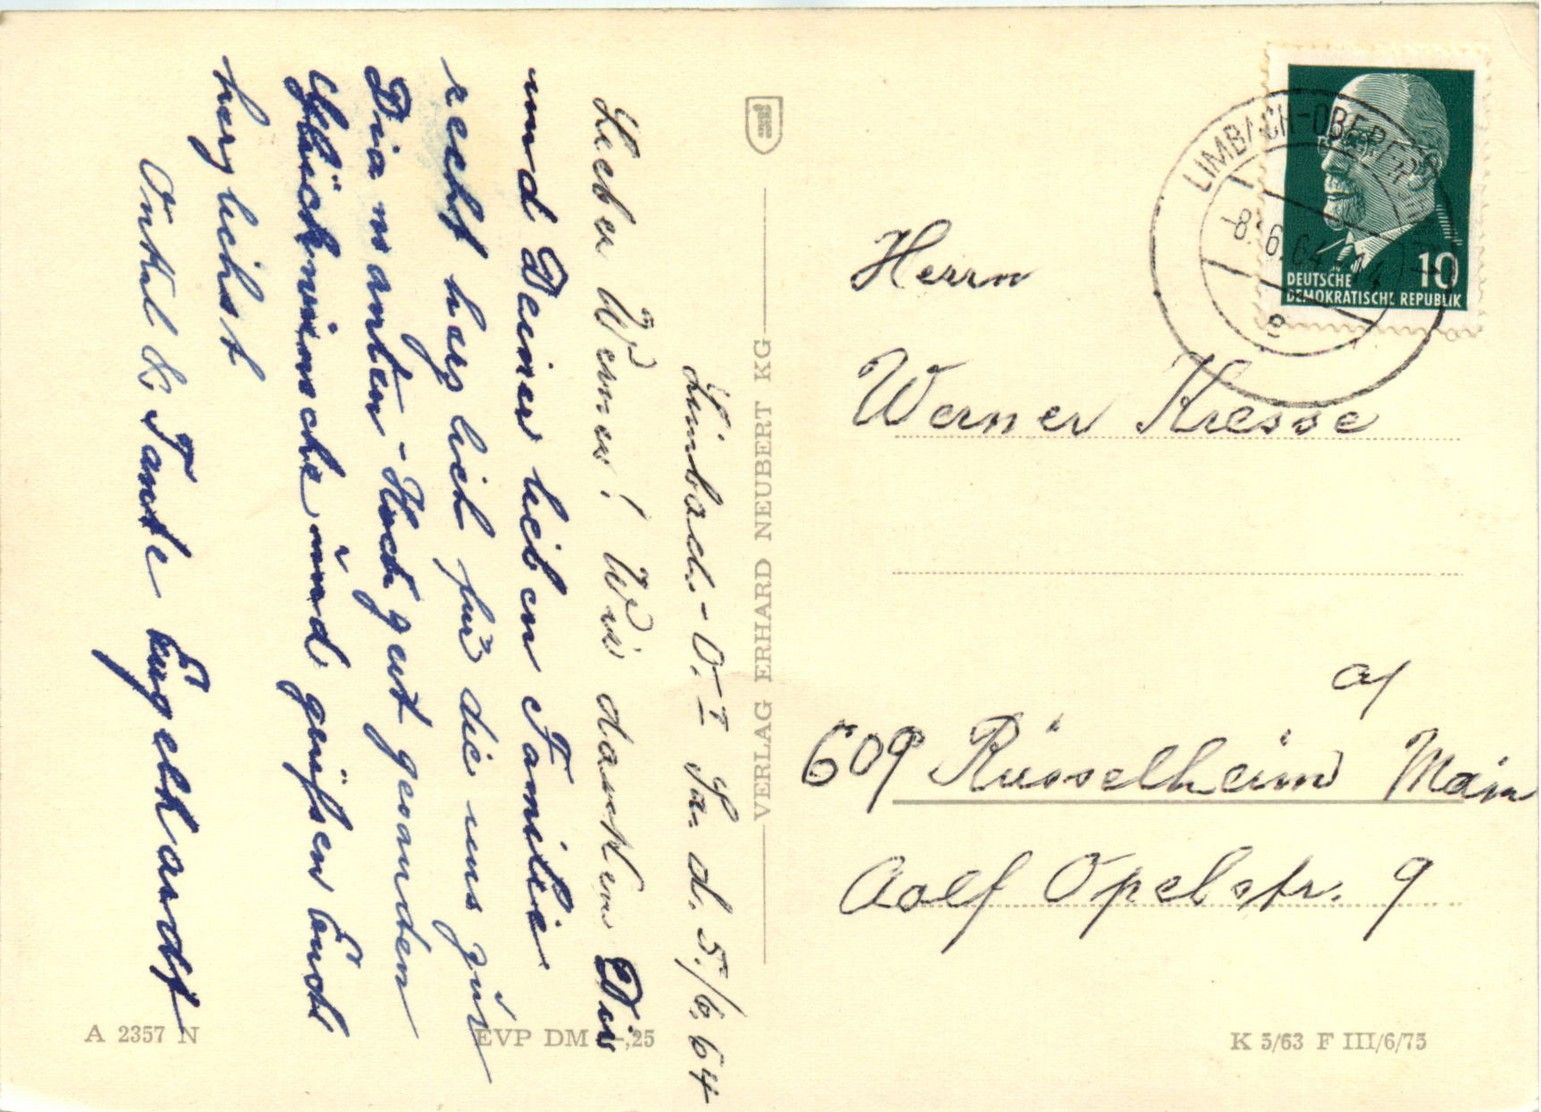 Limbach.-O. Sa. d. 5./6.64
Lieber Werner! Wir danken Dir
und Deiner lieben Familie
recht herzlich für die uns zur
Diamanten-Hochzeit gesanden
Glückwünsche und grüßen Euch
herzlichst
Onkel & Tante Engelhardt
VERLAG ERHARD NEUBERT KG
LIMBACH-OBERFROHNA
-8.6.64-14
e
10
DEUTSCHE
DEMOKRATISCHE REPUBLIK
Herrn
Werner Kresse
a/
609 Rüsselheim Main
Adolf Opelstr. 9
A 2357 N
EVP DM -,25
K 5/63 F III/6/75